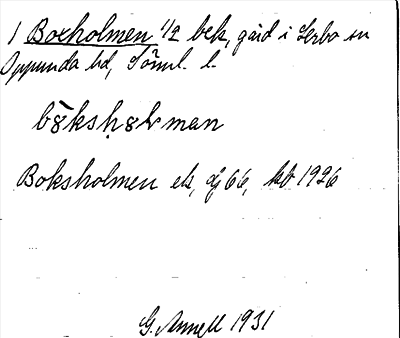 1 Boxholmen 1/2 bek, gård i Lerbo sn
Oppunda hd, Söml. l.
bo̅ksholman
Boksholmen ek, bl 66, kbt 1926
G. Annell 1931